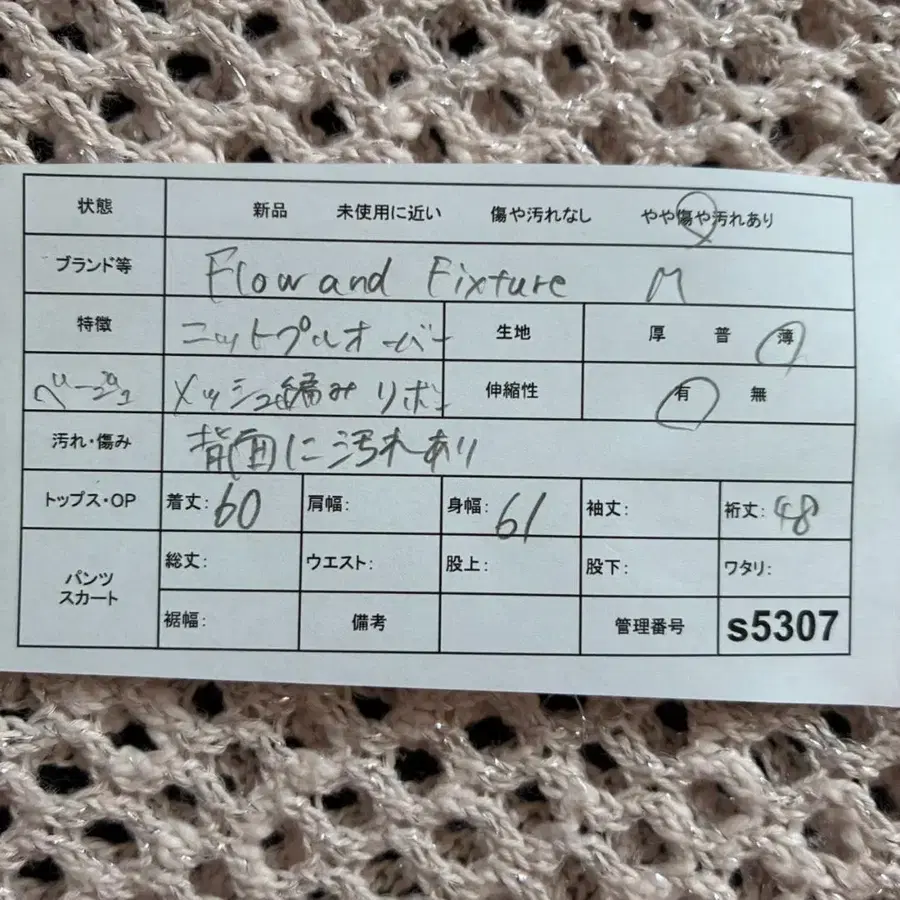 状態 新品 未使用に近い 傷や汚れなし やや傷や汚れあり
ブランド等 Flow and Fixture M
特徴 ニットプルオーバー 生地 厚 普 薄
ベージュ メッシュ編み リボン 伸縮性 有 無
汚れ・傷み 背面に汚れあり
トップス・OP 着丈: 60 肩幅: 身幅: 61 袖丈: 裄丈: 48
パンツ
スカート
総丈: ウエスト: 股上: 股下: ワタリ:
裾幅: 備考 管理番号 s5307